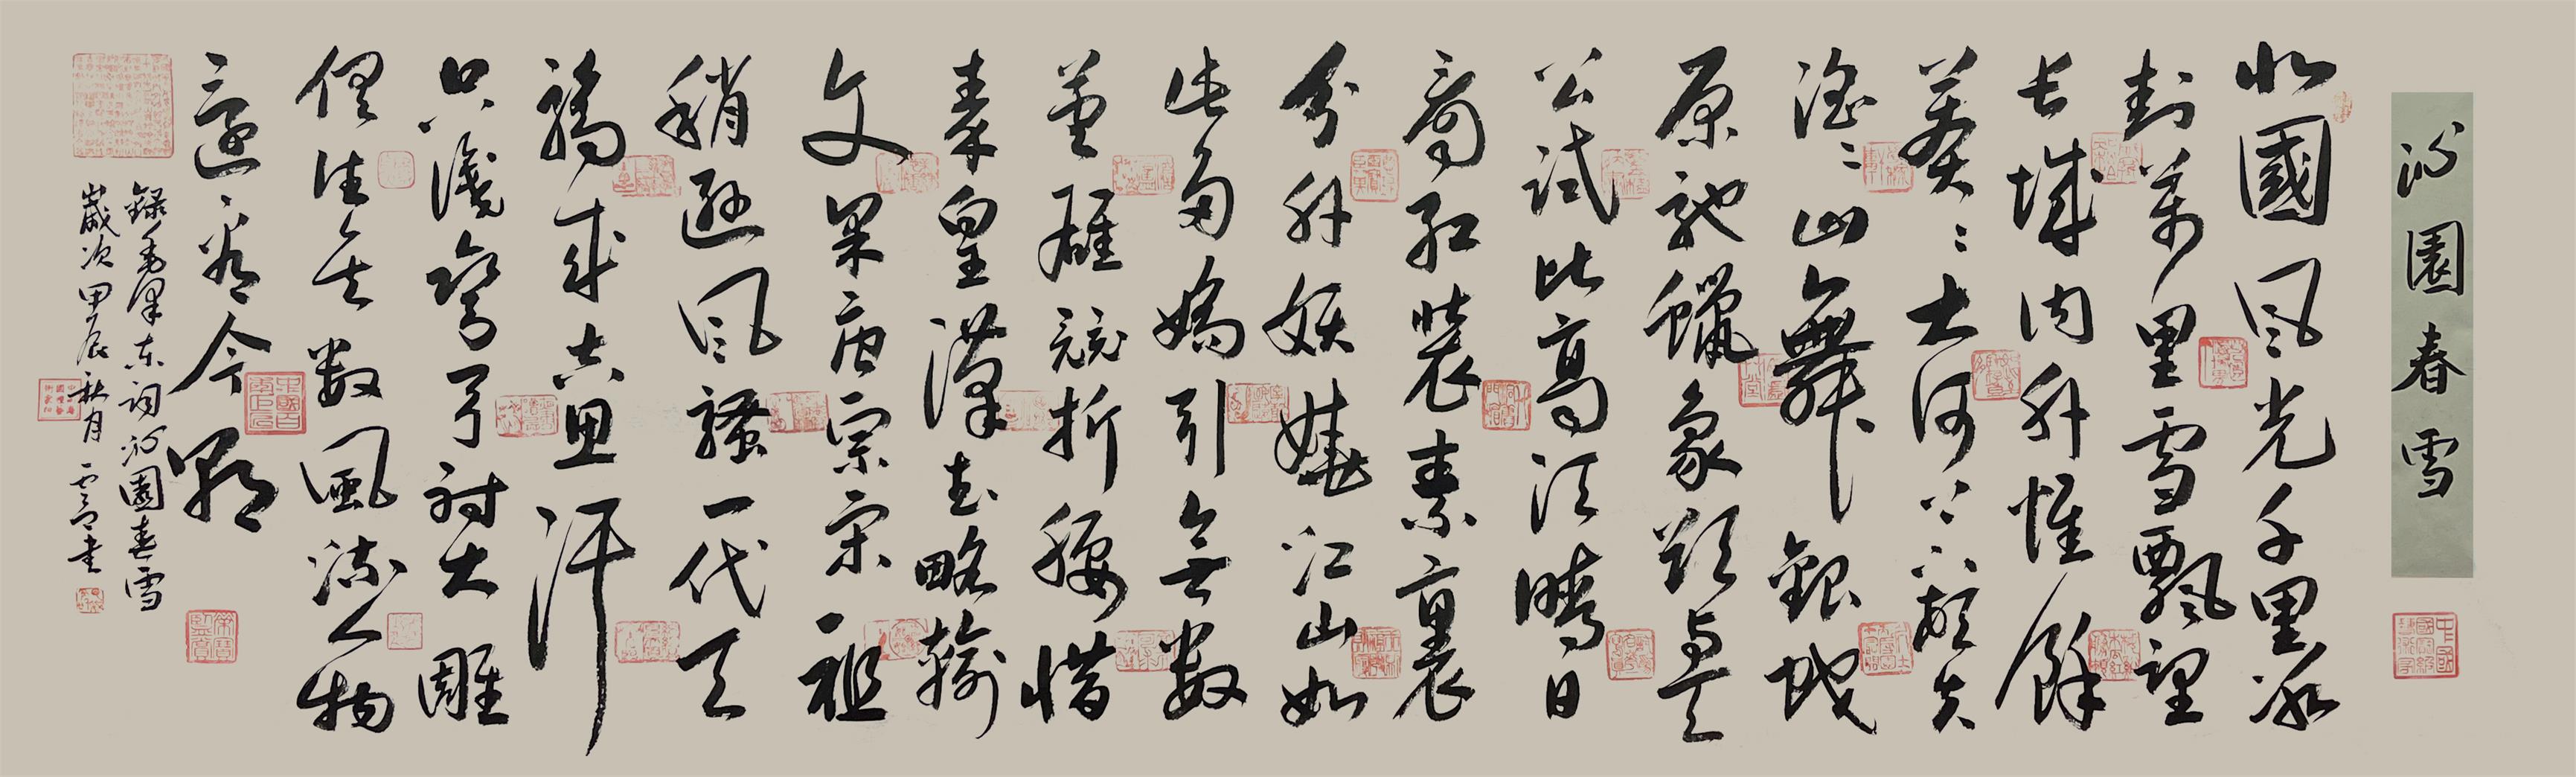 沁園春雪
北國风光千里冰
封萬里雪飄望
长城内外惟餘
莽〻大河上下頓失
滔〻山舞銀蛇
原馳蠟象欲与天
公試比高須晴日
看紅裝素裹
分外妖嬈江山如
此多嬌引無数
英雄競折腰惜
秦皇漢武略輸
文采唐宗宋祖
稍遜风騷一代天
驕成吉思汗
只識彎弓射大雕
俱往矣数風流人物
還看今朝
錄毛澤东词沁園春雪
歲次甲辰秋月
书